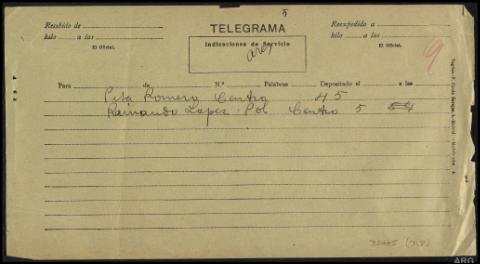 Recibido de
hilo a las
El Oficial.
TELEGRAMA
Indicaciones de Servicio
Reexpedido a
hilo a las
El Oficial.
9
Para de N.º Palabras Depositado el a las
Pita Romero Centro 45
Raimundo Lopez-Pol Centro 5
ARG